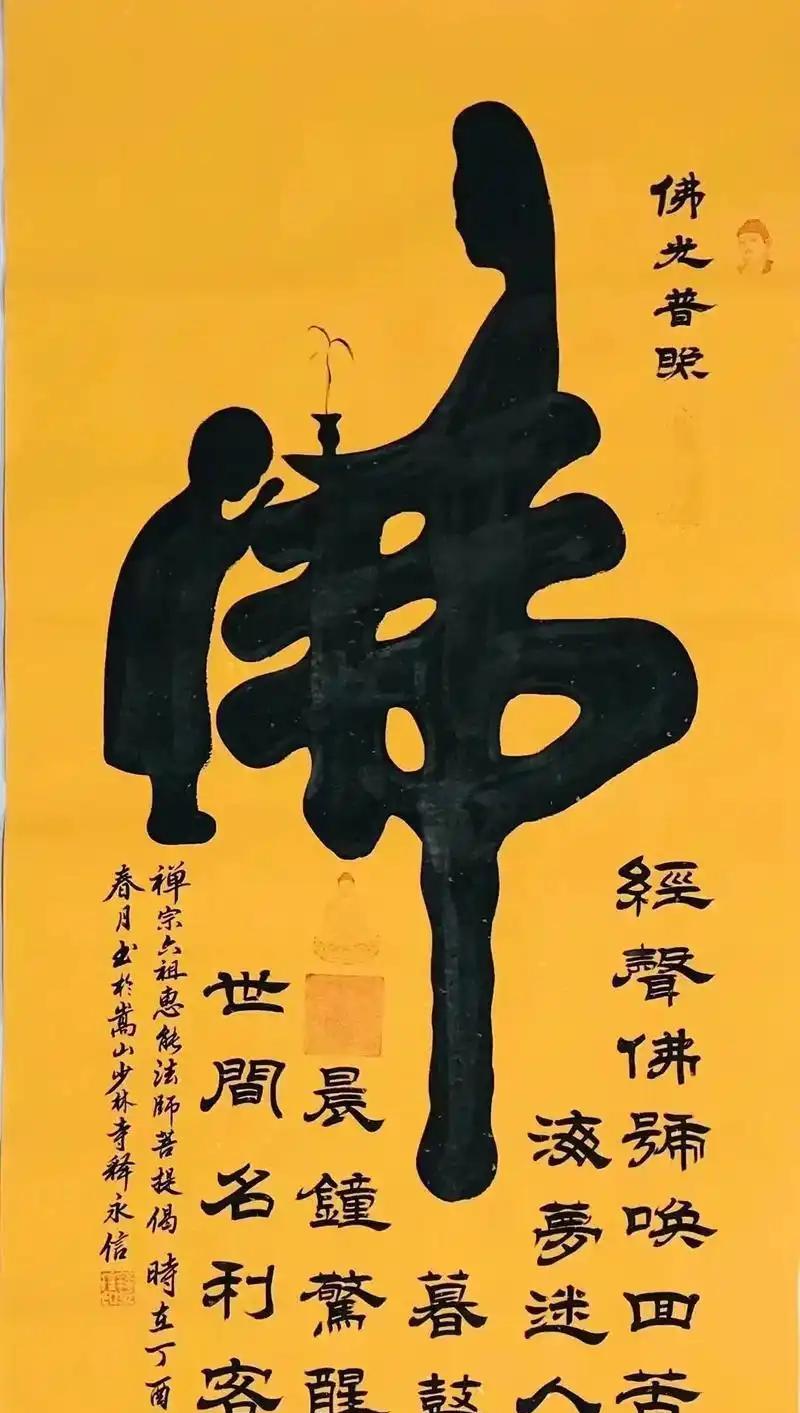 佛光普照
佛
經聲佛號喚回苦
海夢迷人
暮鼓
晨鐘驚醒
世間名利客
禅宗六祖惠能法師菩提偈 時在丁酉
春月书於嵩山少林寺释永信